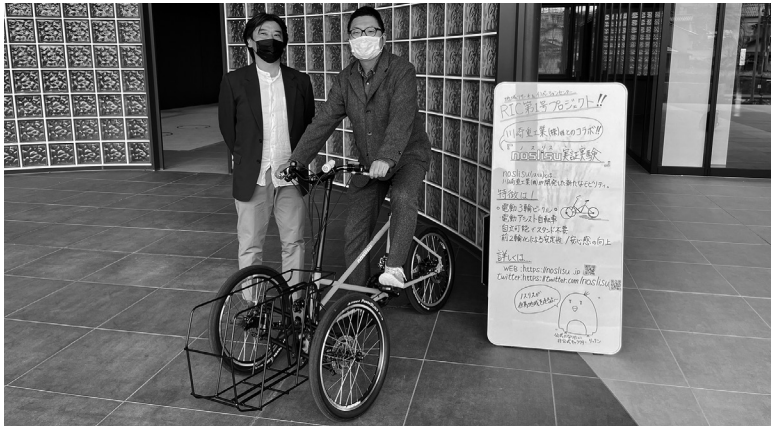 RIC第1号プロジェクト!!
川崎重工業(株)とのコラボ!!
noslisu実証実験
noslisuとは
川崎重工業(株)が開発した新たなモビリティ。
特徴は!
・電動3輪ビークル
電動アシスト自転車
自立可能でスタンド不要
前2輪による安定性/安心感の向上
詳しくは
WEB:https://noslisu.jp
twitter:https://twitter.com/noslisu
ノスリスが